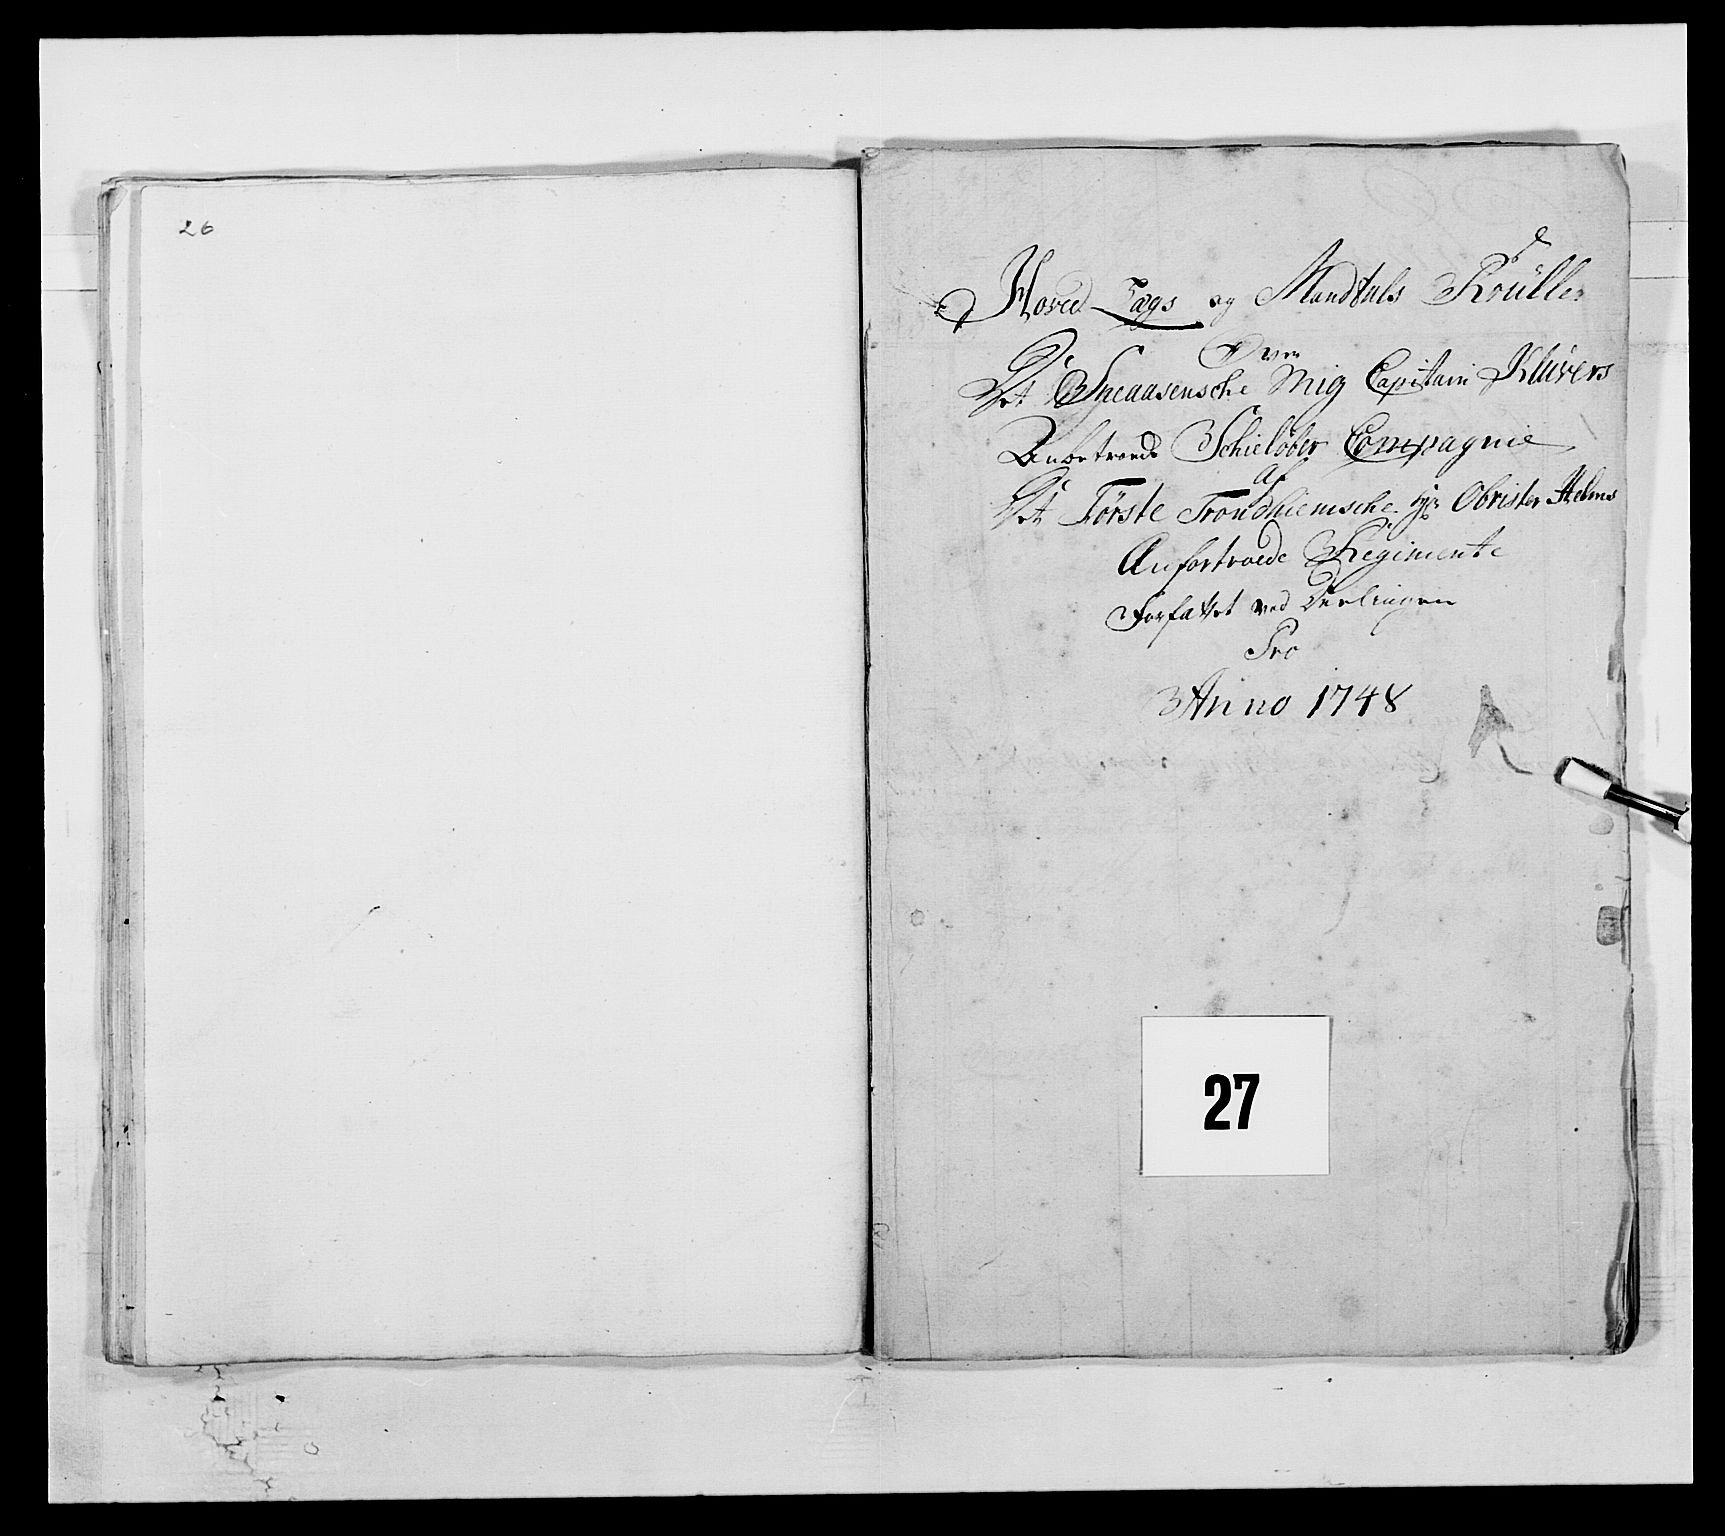 26
Hoved Lægs og Mandtals Rulle
Over
Det Sneaasensche Mig Capitain Klüvers
Anbetroede Schieløber Compagnie
Af
Det Förste Trondhiemsche hr: Obrister Helms
Anfortroede Regimente
Forfattet ved Deelingen
Pro
Anno 1748
27